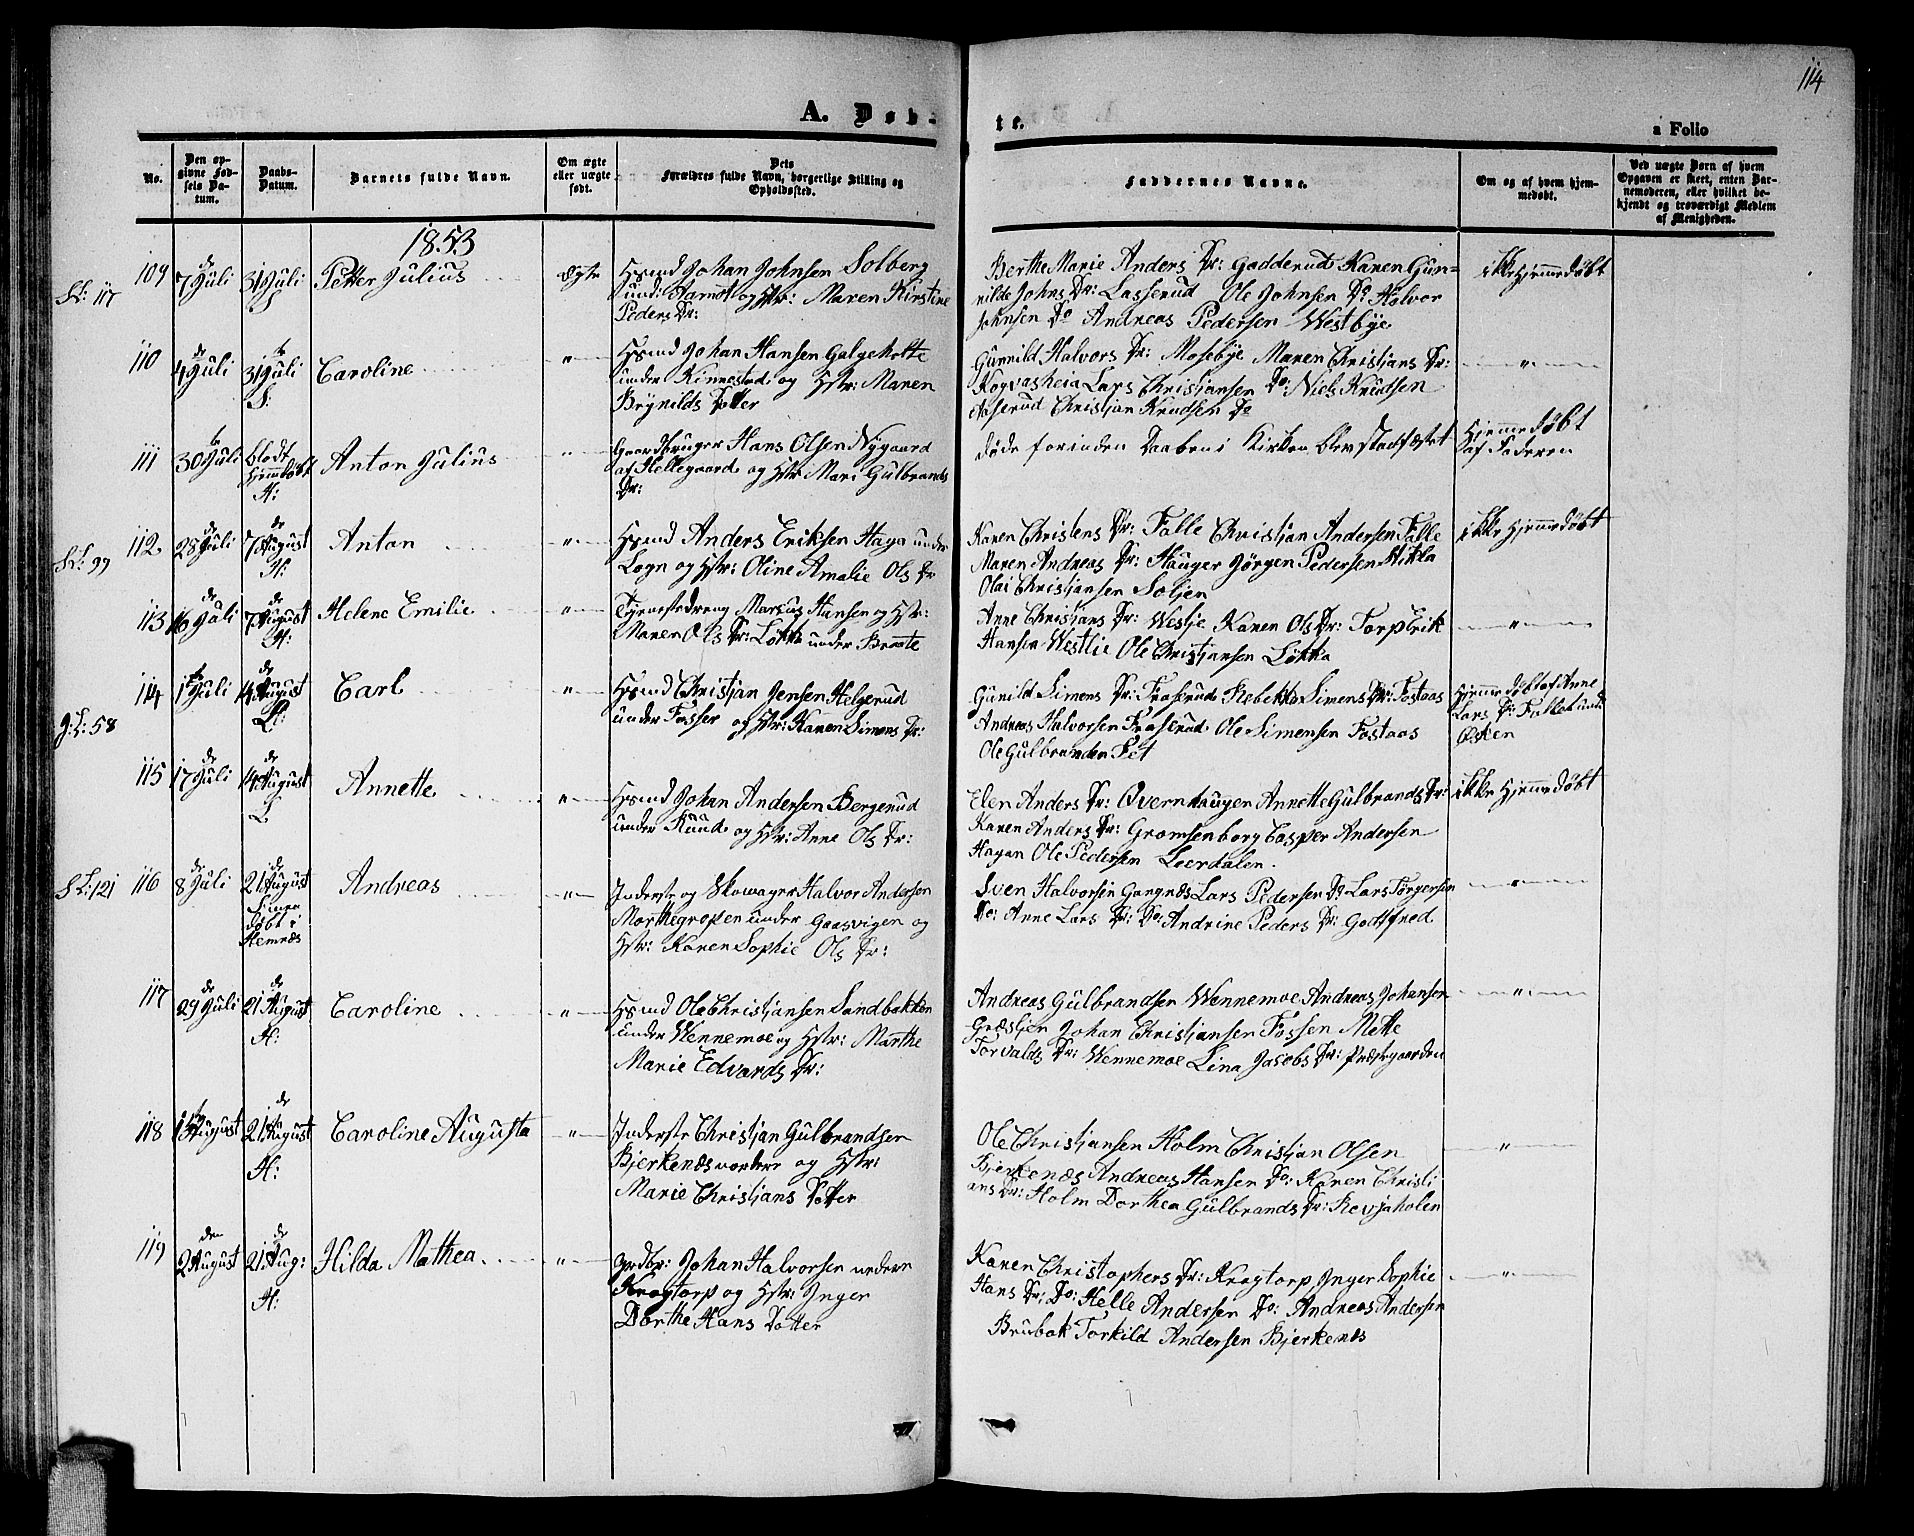 114
A. Døb-
te.
a Folio
No.
Den op-
givne Fød-
sels Da-
tum.
Daabs-
Datum.
Barnets fulde Navn.
Om ægte
eller uægte
født.
Dets
Forældres fulde Navn, borgerlige Stilling og
Opholdssted.
Faddernes Navne.
Om og af hvem hjem-
medøbt.
Ved uægte Børn af hvem
Opgaven er skeet, enten Bar-
nemoderen, eller hvilket be-
kjendt og troværdigt Medlem
af Menigheden.
1853
109
7de Juli
31 Juli
S
Petter Julius
Ægte
Hsmd Johan Johnsen Solberg
und: Aarnæs og Hstr: Maren Kirstine
Peders Dr:
Berthe Marie Anders Dr: Gadderud Karen Gun-
nilde Johns Dr: Lasserud Ole Johnsen Do Halvor
Johnsen Do Andreas Pedersen Westbye
ikke Hjemmedøbt
110
4de Juli
31te Juli
S:
Caroline
"
Hsmd Johan Hansen Galgeholte
under Kinnestad og Hstr: Maren
Brynilds Dotter
Gunnild Halvors Dr: Mosebye Maren Christjans Dr:
Kogvasheia Lars Christjansen Do: Niels Knudsen
Christjan Knudsen Do
"
111
30te Juli
blodt
Hjemdøbt
H:
Anton Julius
"
Gaardbruger Hans Olsen Nygaard
af Hellegaard og Hstr Mari Gulbrands
Dr:
døde forinden Daaben i Kirken blev stadfæstet
Hjemmedøbt
af Faderen
112
28de Juli
7de August
H:
Anton
"
Hsmd Anders Eriksen Haga under
Logn og Hstr: Oline Amalie Ols Dr
Karen Christens Dr: Falle Christjan Andersen Falle
Maren Andreas Dr: Hauger Jørgen Pedersen Mikla
Olai Christjansen Soljen
ikke Hjemmedøbt
113
16de Juli
7de August
H:
Helene Emilie
"
Tjenestedreng Marcus Hansen og Hstr:
Maren Ols Dr: Løkka under Braate
Anne Christjans Dr: Westje Karen Ols Dr: Torp Erik
Hansen Westlie Ole Christjansen Løkka
"
114
1te Juli
14de August
L:
Carl
"
Hsmd Christjan Jensen Helgerud
under Fosser og Hstr: Karen Simens Dr:
Gunild Simens Dr: Fraserud Rebekka Simens Dr: Fostaas
Andreas Halvorsen Fraserud Ole Simensen Fostaas
Ole Gulbrandsen Fet
Hjemmedøbt af Anne
Lars Dr: Falle under
Østen
115
17de Juli
14de August
L
Annette
"
Hsmd Johan Andersen Bergerud
under Ruud og Hstr: Anne Ols Dr:
Elen Anders Dr: Øvernhaugen Annette Gulbrands Dr:
Karen Anders Dr: Gromsenborg Casper Andersen
Hagan Ole Pedersen Leerdalen.
ikke Hjemmedøbt
116
8de Juli
21de August
døbt i
Hemnæs
Andreas
"
Inderste og Skomager Halvor Andersen
Morthegropen under Gaasvigen og
Hstr: Karen Sophie Ols Dr:
Sven Halvorsen Gangnæs Lars Pedersen Do Lars Torgersen
Do: Anne Lars Dr: Do: Andrine Peders Dr: Godtfred
"
117
29de Juli
21de August
H:
Caroline
"
Hsmd Ole Christjansen Sandbakken
under Wennemoe og Hstr: Marthe
Marie Edvards Dr:
Andreas Gulbrandsen Wennemoe Andreas Johansen
Græsljen Johan Christjansen Fossen Mette
Torvalds Dr: Wennemoe Lina Jacobs Dr: Præstegaarden
"
118
1te August
21de August
H:
Caroline Augusta
"
Inderste Christjan Gulbrandsen
Bjerkenæs vestere og Hstr:
Marie Christjans Dotter
Ole Christjansen Holm Christjan Olsen
Bjerkenæs Andreas Hansen Do: Karen Christi
ans Dr: Holm Dorthea Gulbrands Dr: Revjaholen
"
119
2den August
21de Aug:
H:
Hilda Mathea
"
Grdbr: Johan Halvorsen nedere
Krogtorp og Hstr: Inger
Dorthe Hans Dotter
Karen Christophers Dr: Krogtorp Inger Sophie
Hans Dr: Do: Helle Andersen Do: Andreas Andersen
Brubak Torkild Andersen Bjerkenæs
"
SL: 117
SL: 99
gL: 58
SL: 121